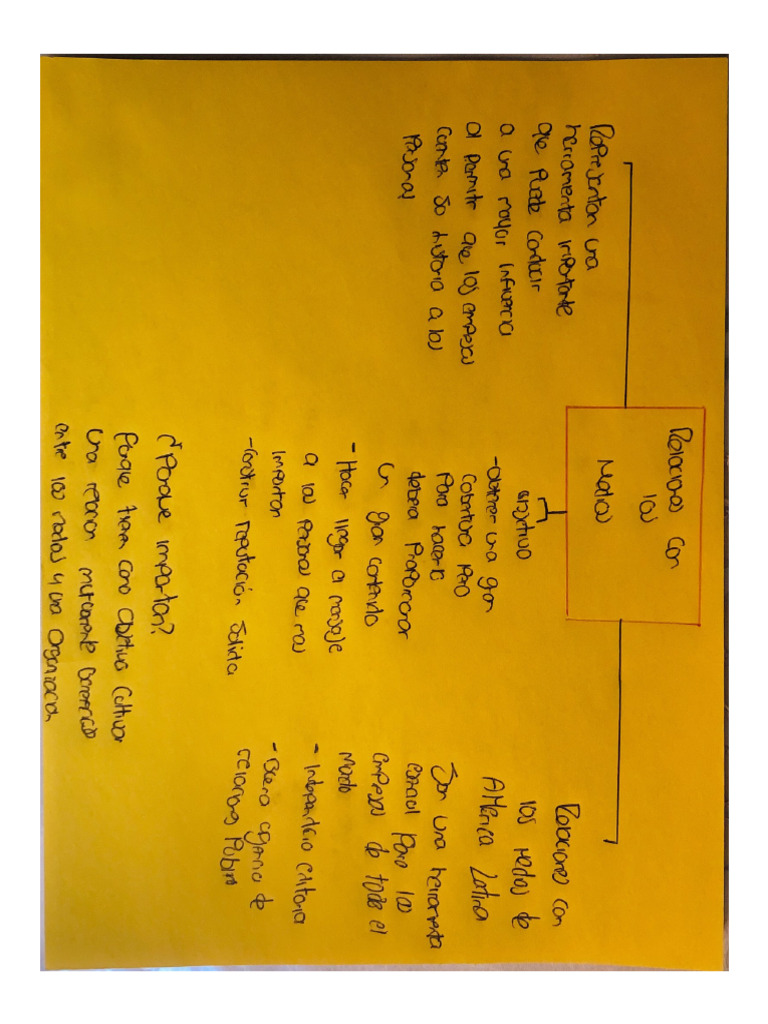 Relaciones con
los
Medios
Representan una
herramienta importante
que puede conducir
a una mayor influencia
al permitir que las empresas
cuenten su historia a las
personas
objetivo
-obtener una gran
cobertura pero
para hacerlo
debera proporcionar
un gran contenido
- Hacer llegar el mensaje
a las personas que mas
importan
- Construir reputación solida
¿Porque importan?
Porque tienen como objetivo cultivar
una relacion mutuamente beneficiosa
entre los medios y una organizacion
Relaciones con
los medios de
America Latina
Son una herramienta
esencial para las
empresas de todo el
mundo
- Independencia editorial
- Buena agencia de
relaciones publicas